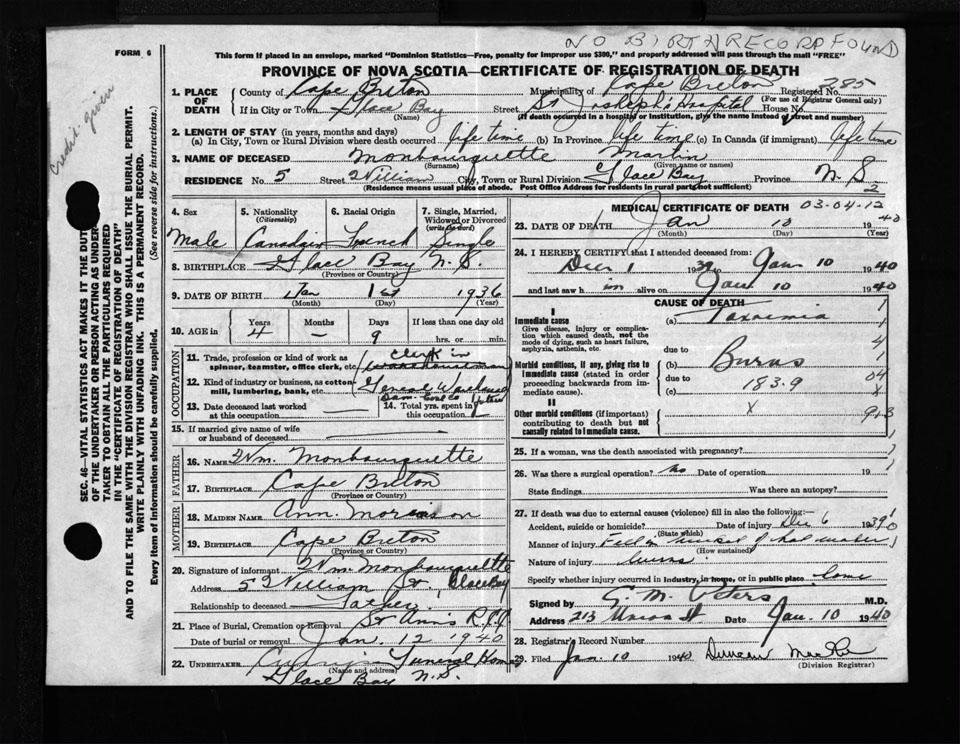 NO BIRTH RECORD FOUND
FORM 6
This form if placed in an envelope, marked "Dominion Statistics—Free, penalty for improper use $300," and properly addressed will pass through the mail "FREE"
PROVINCE OF NOVA SCOTIA—CERTIFICATE OF REGISTRATION OF DEATH
Credit given
SEC. 46—VITAL STATISTICS ACT MAKES IT THE DUTY
OF THE UNDERTAKER OR PERSON ACTING AS UNDER-
TAKER TO OBTAIN ALL THE PARTICULARS REQUIRED
IN THE "CERTIFICATE OF REGISTRATION OF DEATH"
AND TO FILE THE SAME WITH THE DIVISION REGISTRAR WHO SHALL ISSUE THE BURIAL PERMIT.
WRITE PLAINLY WITH UNFADING INK. THIS IS A PERMANENT RECORD.
Every item of Information should be carefully supplied. (See reverse side for instructions.)
1. PLACE OF DEATH County of Cape Breton Municipality of Cape Breton Registered No. 385
(For use of Registrar General only)
If in City or Town Glace Bay Street St Joseph's Hospital House No.
(Name) (If death occurred in a hospital or institution, give the name instead of street and number)
2. LENGTH OF STAY (in years, months and days)
(a) In City, Town or Rural Division where death occurred life time (b) In Province life time (c) In Canada (if immigrant) life time
3. NAME OF DECEASED Monbourquette Martin
(Surname) (Given name or names)
RESIDENCE No. 5 Street William City, Town or Rural Division Glace Bay Province N.S.
(Residence means usual place of abode. Post Office Address for residents in rural parts not sufficient) 2
4. Sex Male
5. Nationality (Citizenship) Canadian
6. Racial Origin French
7. Single, Married, Widowed or Divorced (write the word) Single
8. BIRTHPLACE Glace Bay N.S.
(Province or Country)
9. DATE OF BIRTH Jan 1st 1936
(Month) (Day) (Year)
10. AGE in Years Months Days If less than one day old
4 — 9 hrs. or min.
OCCUPATION
11. Trade, profession or kind of work as spinner, teamster, office clerk, etc. Clerk in warehouseman
12. Kind of industry or business, as cotton mill, lumbering, bank, etc. General Warehouse
Dom. Coal Co father
13. Date deceased last worked at this occupation —
14. Total yrs. spent in this occupation
15. If married give name of wife or husband of deceased —
FATHER
16. NAME Wm. Monbourquette
17. BIRTHPLACE Cape Breton
(Province or Country)
MOTHER
18. MAIDEN NAME Ann Morrison
19. BIRTHPLACE Cape Breton
(Province or Country)
20. Signature of informant Wm. Monbourquette
Address 5 William St. Glace Bay
Relationship to deceased Father
21. Place of Burial, Cremation or Removal St Anns R.C.
Date of burial or removal Jan. 12 1940
22. UNDERTAKER Funeral Home
(Name and address)
Glace Bay N.S.
MEDICAL CERTIFICATE OF DEATH 03-04-12
23. DATE OF DEATH Jan 10 1940
(Month) (Day) (Year)
24. I HEREBY CERTIFY that I attended deceased from:
Dec 1 1939 to Jan 10 1940
and last saw him alive on Jan 10 1940
CAUSE OF DEATH
I
Immediate cause
Give disease, injury or complication which caused death, not the mode of dying, such as heart failure, asphyxia, asthenia, etc.
(a) Toxaemia
due to
Morbid conditions, if any, giving rise to immediate cause (stated in order proceeding backwards from immediate cause).
(b) Burns
due to 183.9
(c)
II
Other morbid conditions (if important) contributing to death but not causally related to immediate cause.
x
25. If a woman, was the death associated with pregnancy?
26. Was there a surgical operation? no Date of operation 19
State findings Was there an autopsy?
27. If death was due to external causes (violence) fill in also the following:—
Accident, suicide or homicide? Date of injury Dec 6 1939
(State which)
Manner of injury Fell in bucket of hot water
(How sustained)
Nature of injury burns
Specify whether injury occurred in industry, in home, or in public place home
Signed by M.D.
Address 213 Union St Date Jan. 10 1940
28. Registrar's Record Number
29. Filed Jan 10 1940 Duncan MacRae
(Division Registrar)